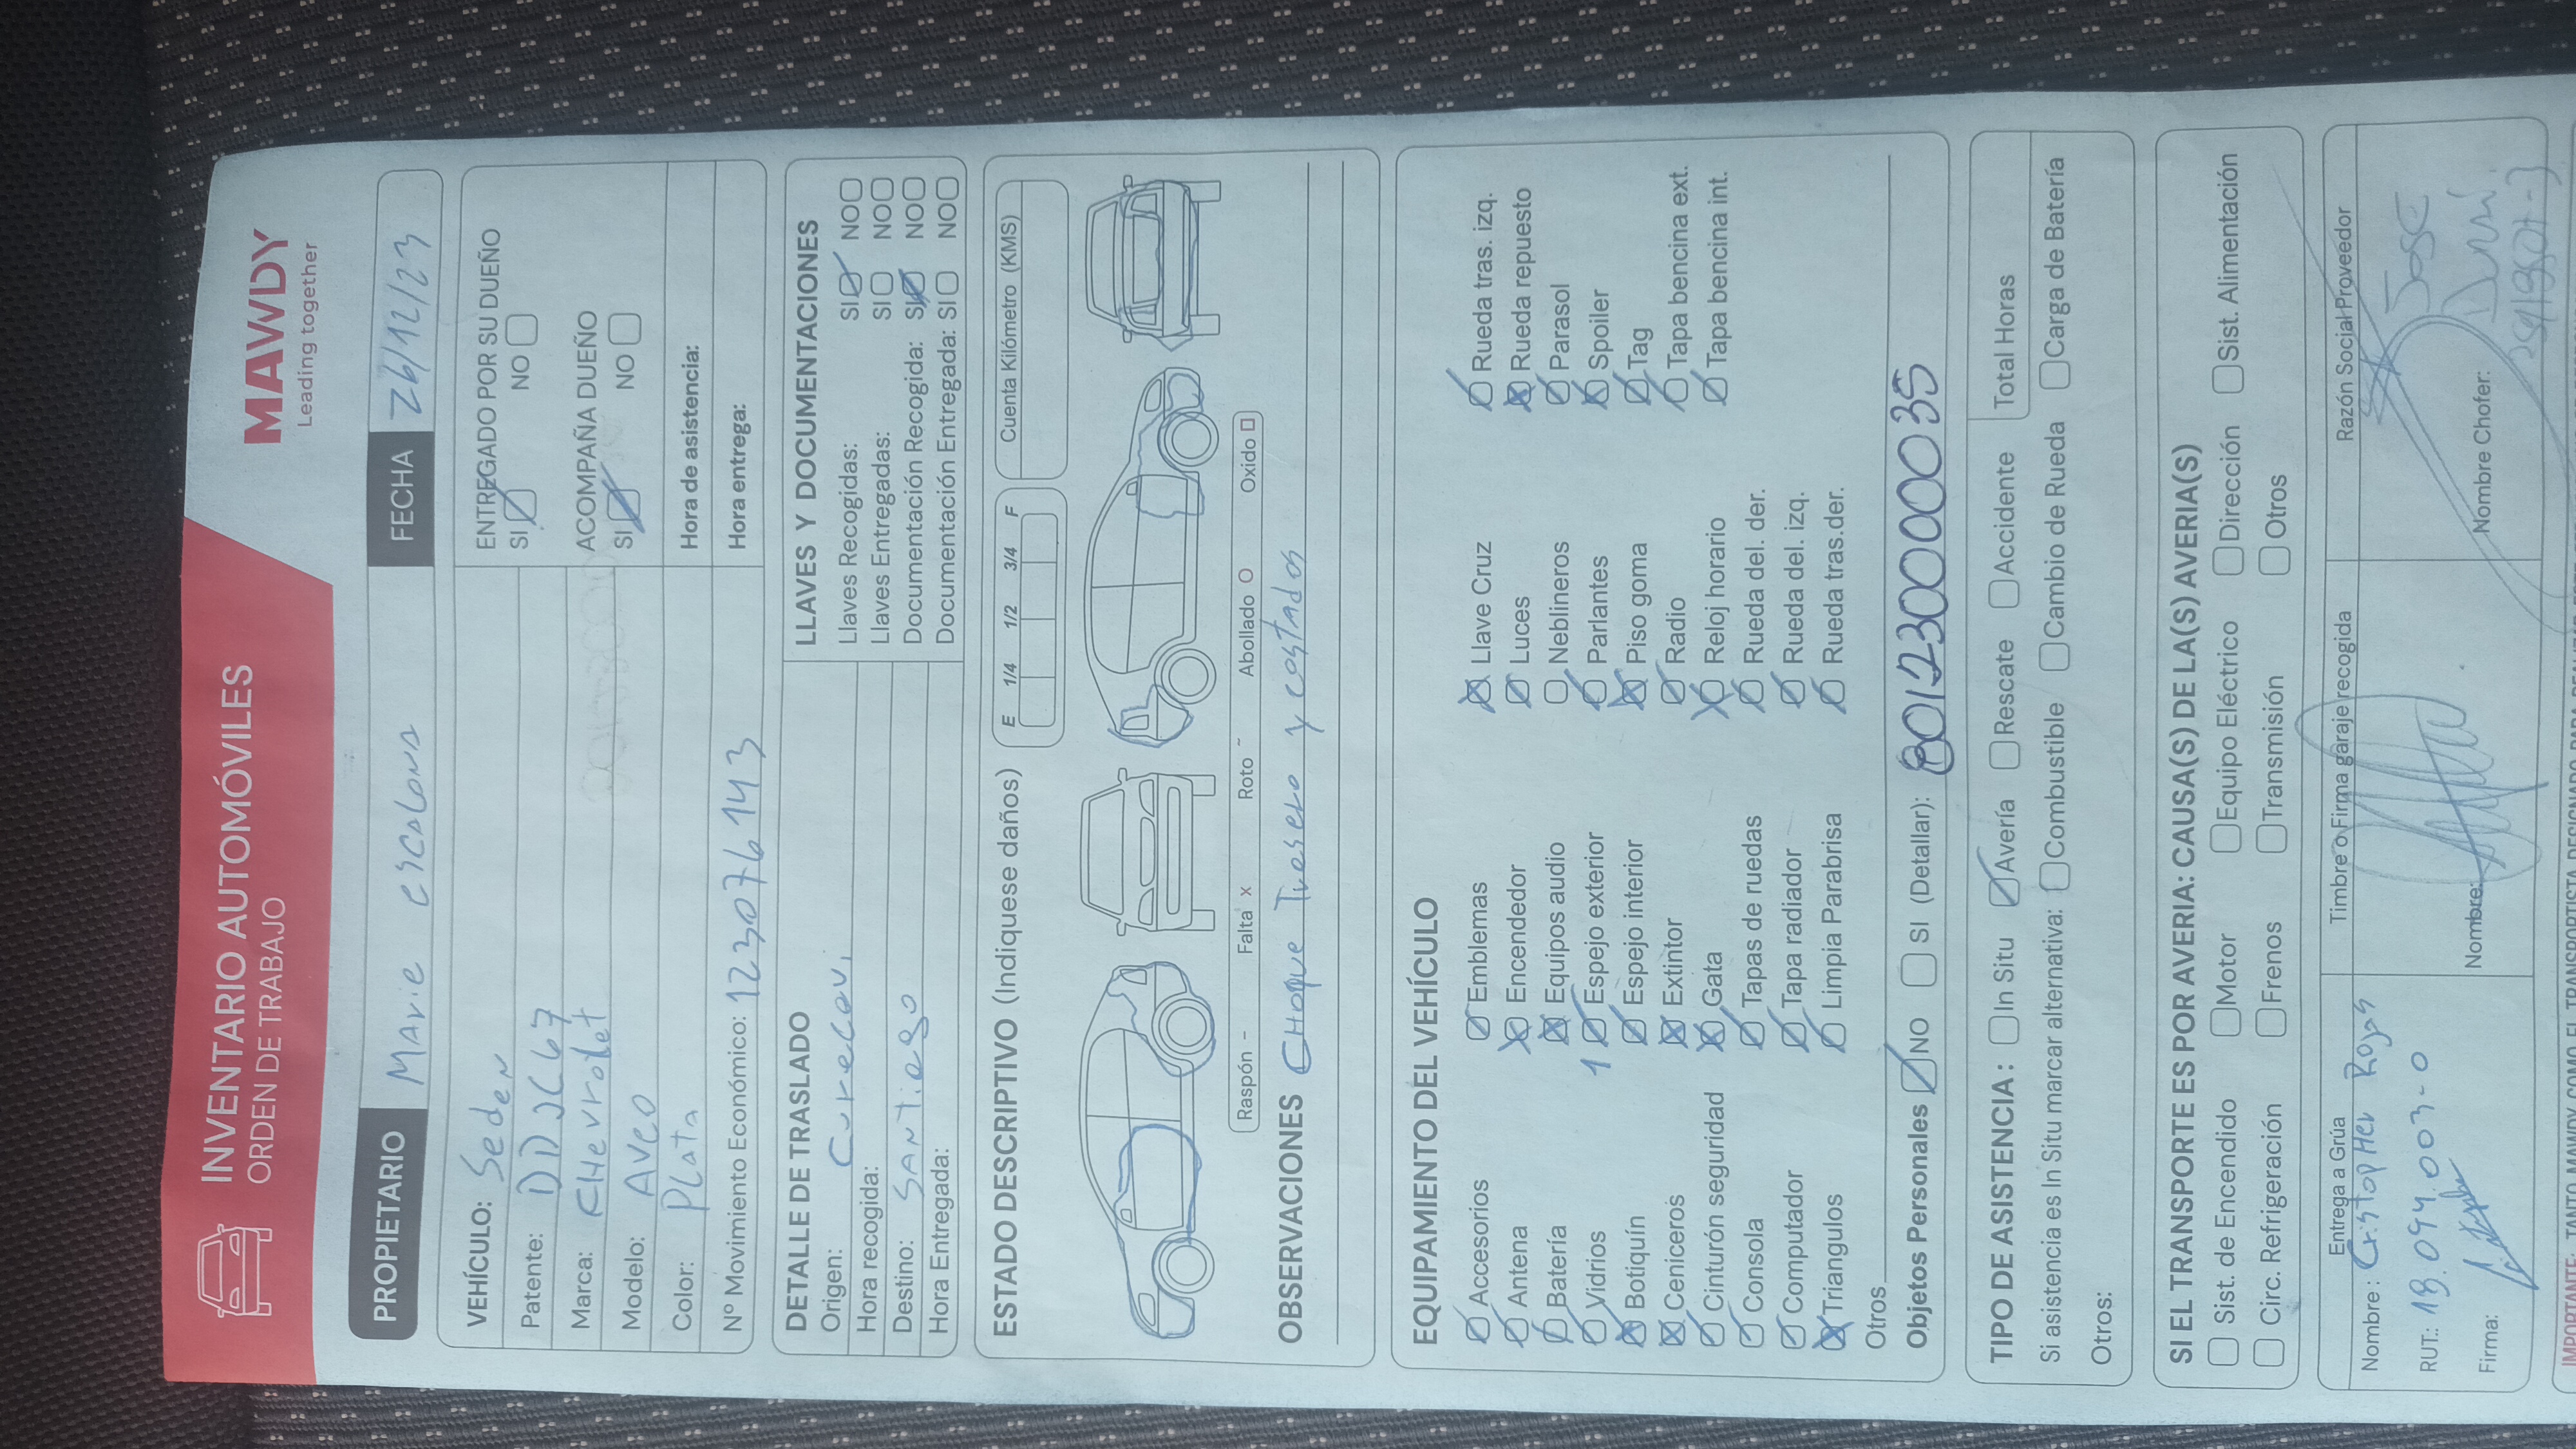 INVENTARIO AUTOMÓVILES
ORDEN DE TRABAJO
MAWDY
Leading together
PROPIETARIO Marie escalona FECHA 26/12/23
VEHÍCULO: Seden
Patente: DDJC67
Marca: CHevrolet
Modelo: AVeo
Color: PLata
Nº Movimiento Económico: 1230776143
ENTREGADO POR SU DUEÑO
SI NO
ACOMPAÑA DUEÑO
SI NO
Hora de asistencia:
Hora entrega:
DETALLE DE TRASLADO
Origen: Curecavi
Hora recogida:
Destino: SANTiago
Hora Entregada:
LLAVES Y DOCUMENTACIONES
Llaves Recogidas: SI NO
Llaves Entregadas: SI NO
Documentación Recogida: SI NO
Documentación Entregada: SI NO
ESTADO DESCRIPTIVO (Indiquese daños)
E 1/4 1/2 3/4 F
Cuenta Kilómetro (KMS)
Raspón - Falta x Roto ~ Abollado O Oxido □
OBSERVACIONES CHoque Trasero y costados
EQUIPAMIENTO DEL VEHÍCULO
Accesorios Emblemas Llave Cruz Rueda tras. izq.
Antena Encendedor Luces Rueda repuesto
Batería Equipos audio Neblineros Parasol
Vidrios 1 Espejo exterior Parlantes Spoiler
Botiquín Espejo interior Piso goma Tag
Ceniceros Extintor Radio Tapa bencina ext.
Cinturón seguridad Gata Reloj horario Tapa bencina int.
Consola Tapas de ruedas Rueda del. der.
Computador Tapa radiador Rueda del. izq.
Triangulos Limpia Parabrisa Rueda tras.der.
Otros
Objetos Personales NO SI (Detallar): 8012300000035
TIPO DE ASISTENCIA: In Situ Avería Rescate Accidente Total Horas
Si asistencia es In Situ marcar alternativa: Combustible Cambio de Rueda Carga de Batería
Otros:
SI EL TRANSPORTE ES POR AVERIA: CAUSA(S) DE LA(S) AVERIA(S)
Sist. de Encendido Motor Equipo Eléctrico Dirección Sist. Alimentación
Circ. Refrigeración Frenos Transmisión Otros
Entrega a Grúa Timbre o Firma garaje recogida Razón Social Proveedor
Nombre: Cristopher Rojas
RUT.: 18.094.003-0
Firma:
Nombre:
José
Nombre Chofer: